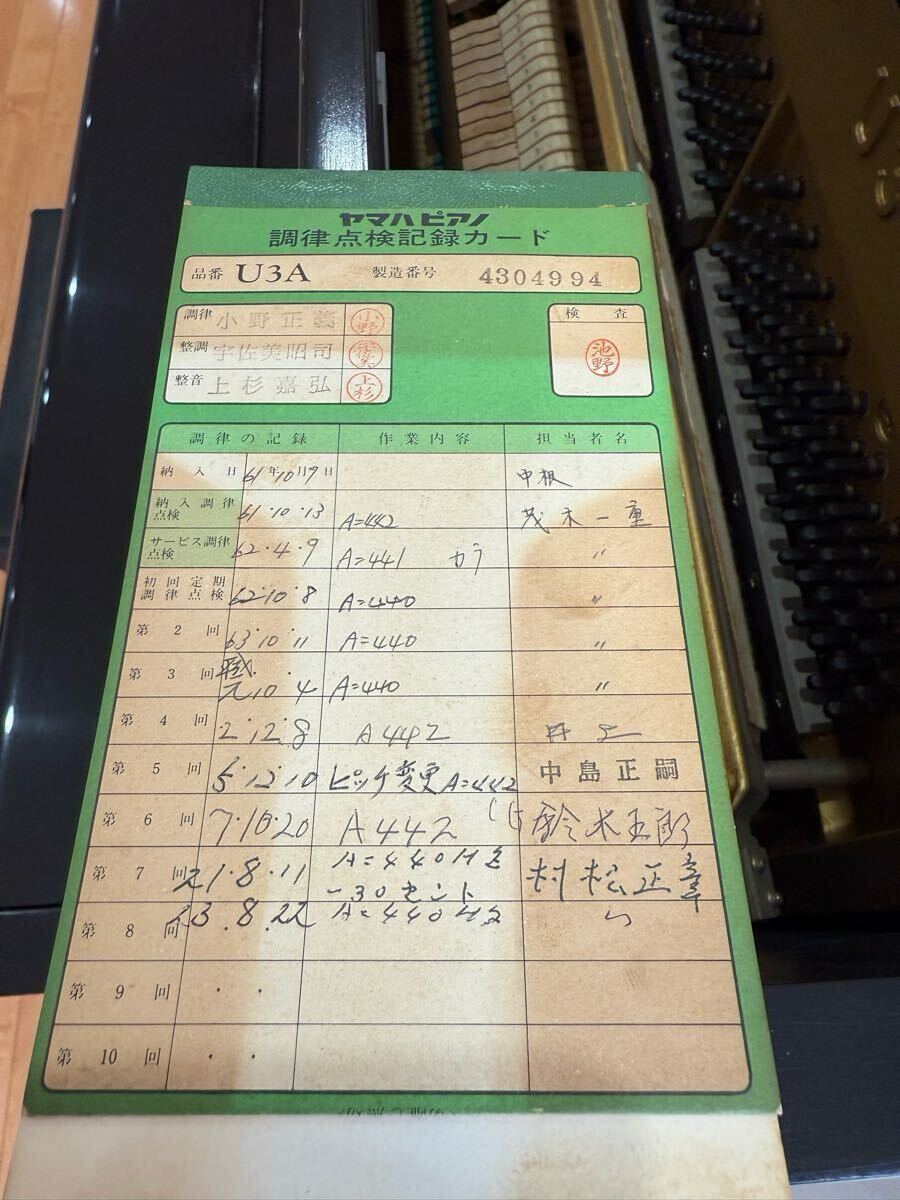 ヤマハピアノ
調律点検記録カード
品番 U3A 製造番号 4304994
調律 小野正義 小野
整調 宇佐美昭司
整音 上杉嘉弘 上杉
検査
池野
調律の記録 作業内容 担当者名
納入日 61年10月9日 中根
納入調律点検 61・10・13 A=442 茂木一重
サービス調律点検 62・4・9 A=441 〃
初回定期調律点検 62・10・8 A=440 〃
第2回 63・10・11 A=440 〃
第3回 元 10 4 A=440 〃
第4回 2・12・8 A442 井上
第5回 5・12・10 ピッチ変更 A=442 中島正嗣
第6回 7・10・20 A442 鈴木五郎
第7回 21・8・11 A=440Hz -30セント 村松正
第8回 23・8・22 A=440Hz 〃
第9回 ・ ・
第10回 ・ ・